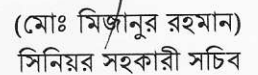 (মোঃ মিজানুর রহমান)
সিনিয়র সহকারী সচিব